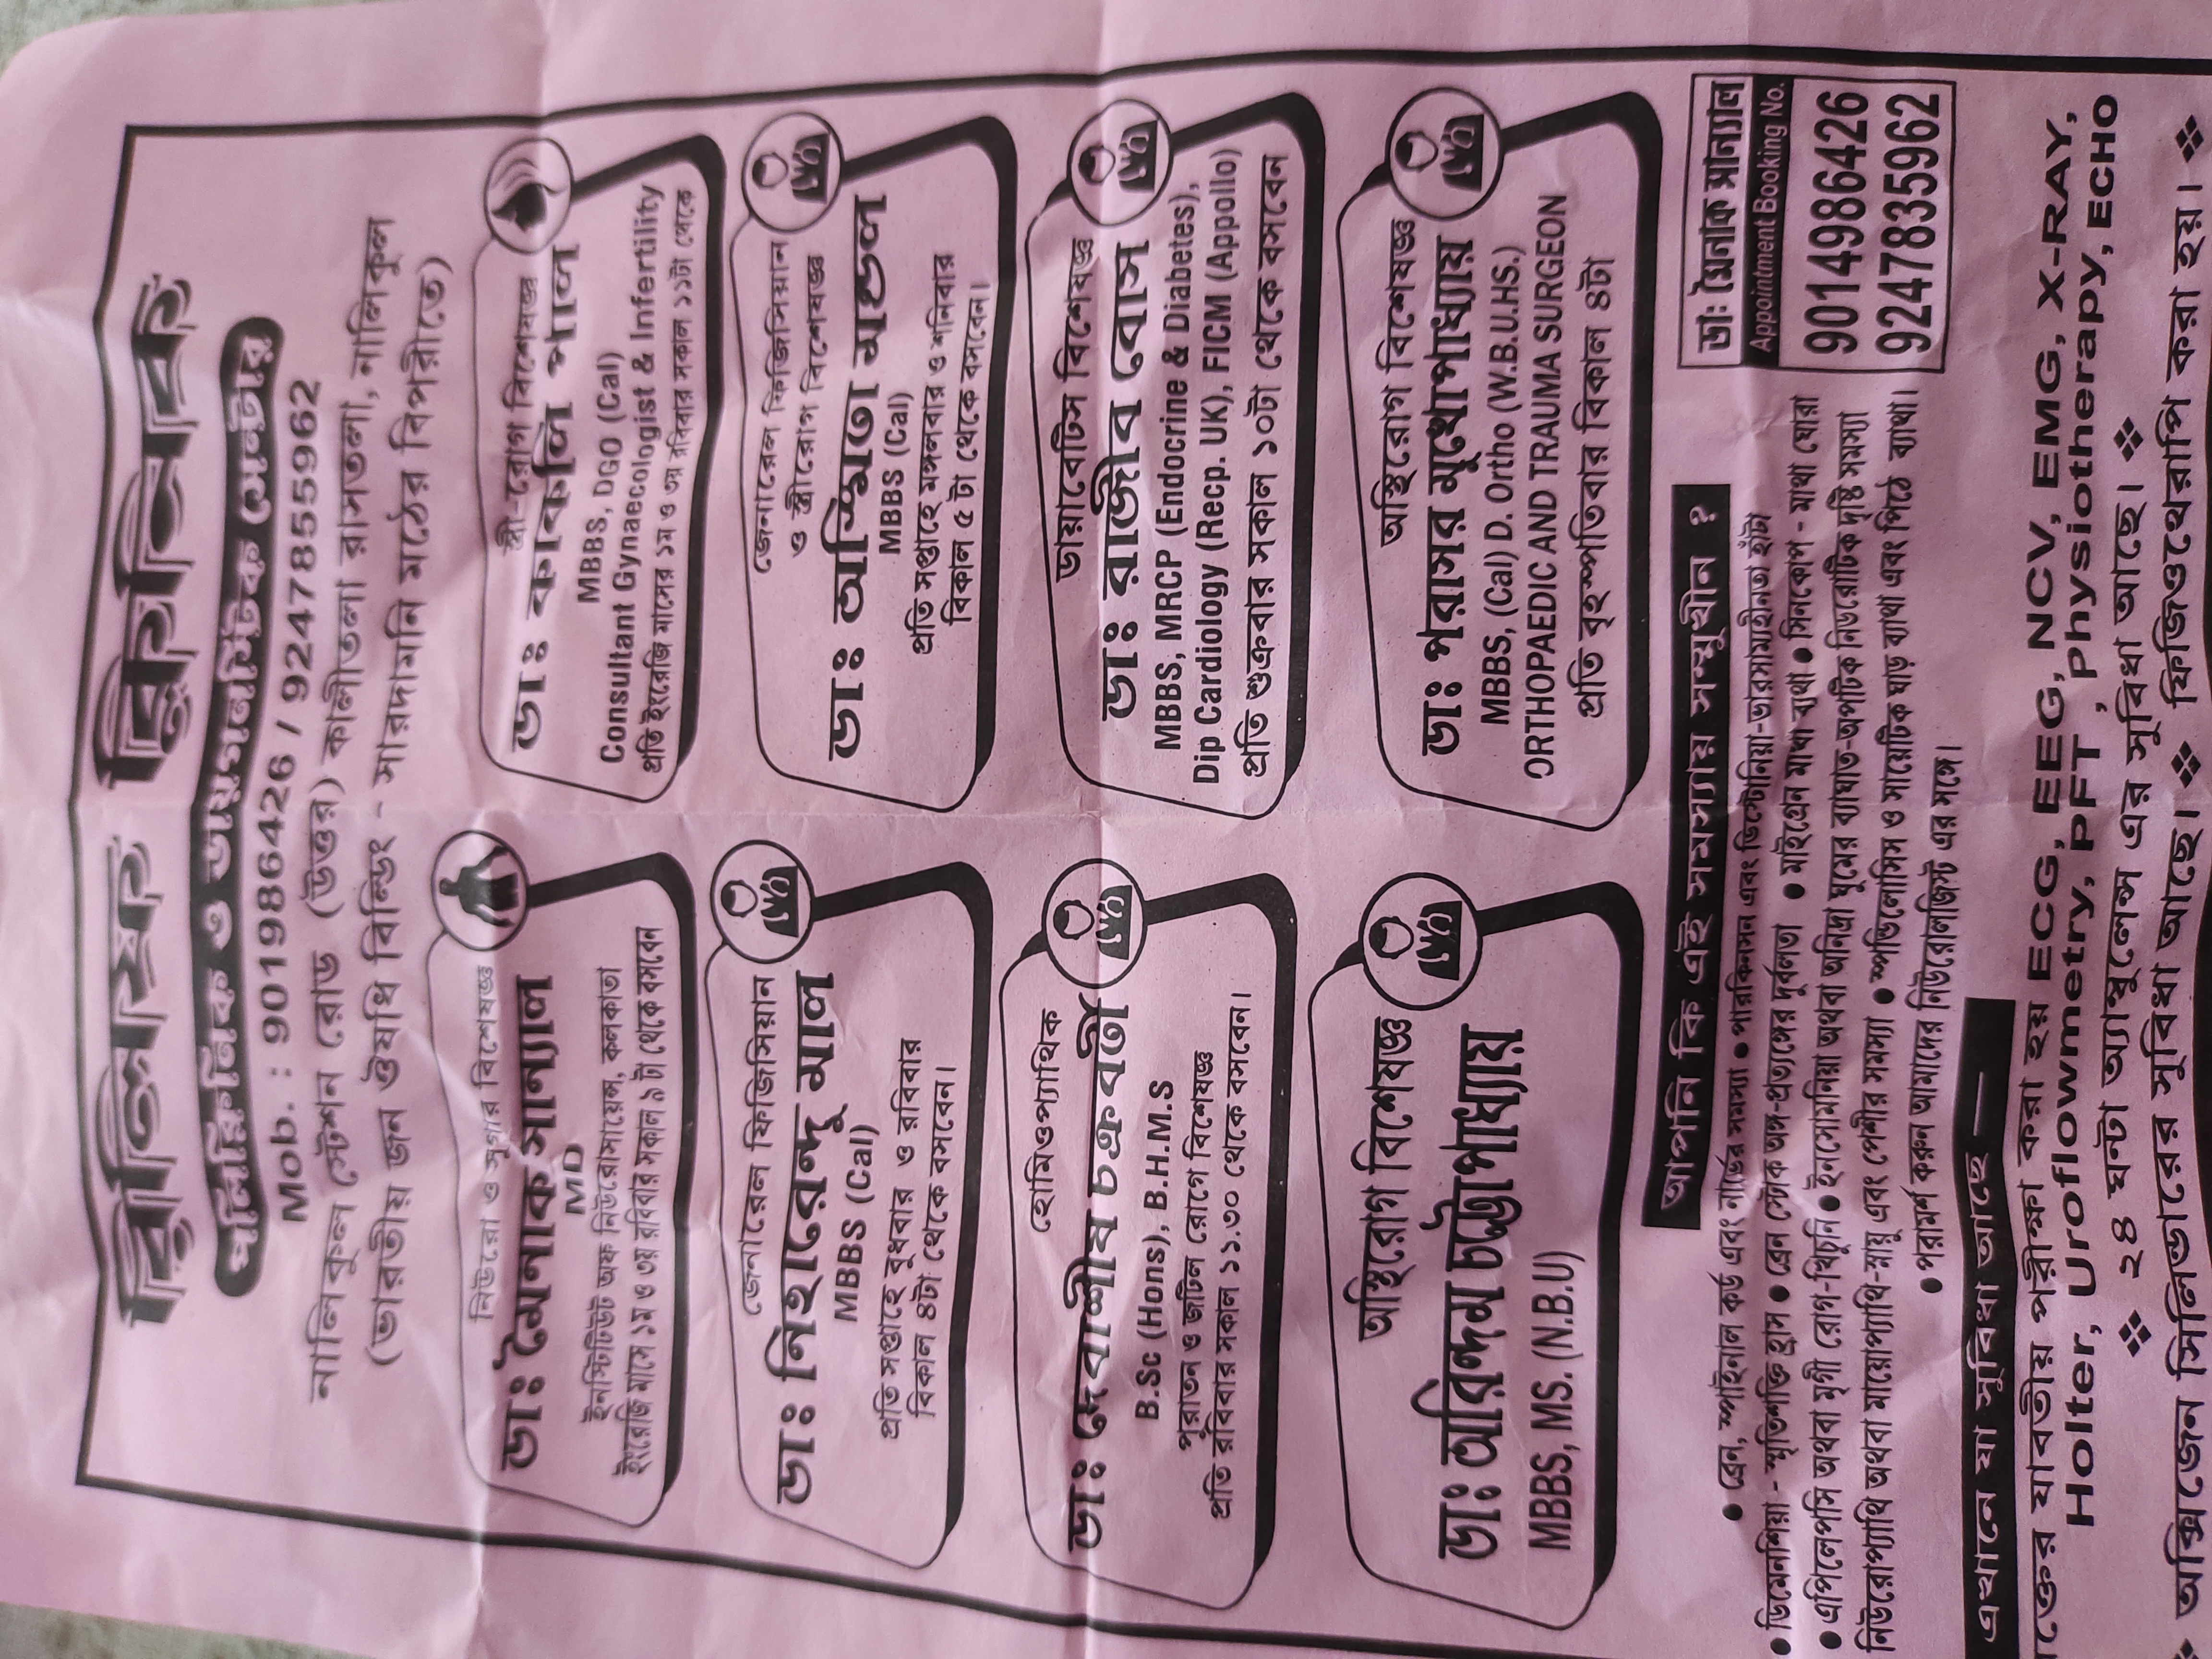 রিলিফ ক্লিনিক
পলিক্লিনিক ও ডায়াগনস্টিক সেন্টার
Mob. : 9019986426 / 9247855962
নালিকুল স্টেশন রোড (উত্তর) কালীতলা রাসতলা, নালিকুল
(ভারতীয় জন ঔষধি বিল্ডিং - সারদামনি মঠের বিপরীতে)
নিউরো ও সুগার বিশেষজ্ঞ
ডাঃ মৈনাক সান্যাল
MD
ইনস্টিটিউট অফ নিউরোসায়েন্স, কলকাতা
ইংরেজি মাসে ১ম ও ৩য় রবিবার সকাল ৯ টা থেকে বসবেন
স্ত্রী-রোগ বিশেষজ্ঞ
ডাঃ কাকলি পাল
MBBS, DGO (Cal)
Consultant Gynaecologist & Infertility
প্রতি ইংরেজি মাসের ১ম ও ৩য় রবিবার সকাল ১১টা থেকে
জেনারেল ফিজিসিয়ান
ডাঃ নিহারেন্দু মাল
MBBS (Cal)
প্রতি সপ্তাহে বুধবার ও রবিবার
বিকাল ৪টা থেকে বসবেন।
জেনারেল ফিজিসিয়ান
ও স্ত্রীরোগ বিশেষজ্ঞ
ডাঃ অস্মিতা মণ্ডল
MBBS (Cal)
প্রতি সপ্তাহে মঙ্গলবার ও শনিবার
বিকাল ৫ টা থেকে বসবেন।
হোমিওপ্যাথিক
ডাঃ দেবাশীষ চক্রবর্তী
B.Sc (Hons), B.H.M.S
পুরাতন ও জটিল রোগে বিশেষজ্ঞ
প্রতি রবিবার সকাল ১১.৩০ থেকে বসবেন।
ডায়াবেটিস বিশেষজ্ঞ
ডাঃ রাজীব বোস
MBBS, MRCP (Endocrine & Diabetes),
Dip Cardiology (Recp. UK), FICM (Appollo)
প্রতি শুক্রবার সকাল ১০টা থেকে বসবেন
অস্থিরোগ বিশেষজ্ঞ
ডাঃ অরিন্দম চট্টোপাধ্যায়
MBBS, MS. (N.B.U)
অস্থিরোগ বিশেষজ্ঞ
ডাঃ পরাসর মুখোপাধ্যায়
MBBS, (Cal) D. Ortho (W.B.U.HS.)
ORTHOPAEDIC AND TRAUMA SURGEON
প্রতি বৃহস্পতিবার বিকাল ৪টা
আপনি কি এই সমস্যায় সম্মুখীন ?
● ব্রেন, স্পাইনাল কর্ড এবং নার্ভের সমস্যা ● পারকিনসন এবং ডিস্টোনিয়া-ভারসাম্যহীনতা হাঁটা
● ডিমেনশিয়া - স্মৃতিশক্তি হ্রাস ● ব্রেন স্ট্রোক অঙ্গ-প্রত্যঙ্গের দুর্বলতা ● মাইগ্রেন মাথা ব্যথা ● সিনকোপ - মাথা ঘোরা
● এপিলেপসি অথবা মৃগী রোগ-খিঁচুনি ● ইনসোমনিয়া অথবা অনিদ্রা ঘুমের ব্যাঘাত-অপটিক নিউরোটিক দৃষ্টি সমস্যা
নিউরোপ্যাথি অথবা মায়োপ্যাথি-স্নায়ু এবং পেশীর সমস্যা ● স্পন্ডিলোসিস ও সায়েটিক ঘাড় ব্যথা এবং পিঠে ব্যাথা।
● পরামর্শ করুন আমাদের নিউরোলজিস্ট এর সঙ্গে।
ডাঃ মৈনাক সান্যাল
Appointment Booking No.
9014986426
9247835962
এখানে যা সুবিধা আছে —
ক্তের যাবতীয় পরীক্ষা করা হয় ECG, EEG, NCV, EMG, X-RAY,
Holter, Uroflowmetry, PFT , Physiotherapy, ECHO
❖ ২৪ ঘন্টা অ্যাম্বুলেন্স এর সুবিধা আছে। ❖
❖ অক্সিজেন সিলিন্ডারের সুবিধা আছে। ❖ ❖ ফিজিওথেরাপি করা হয়। ❖